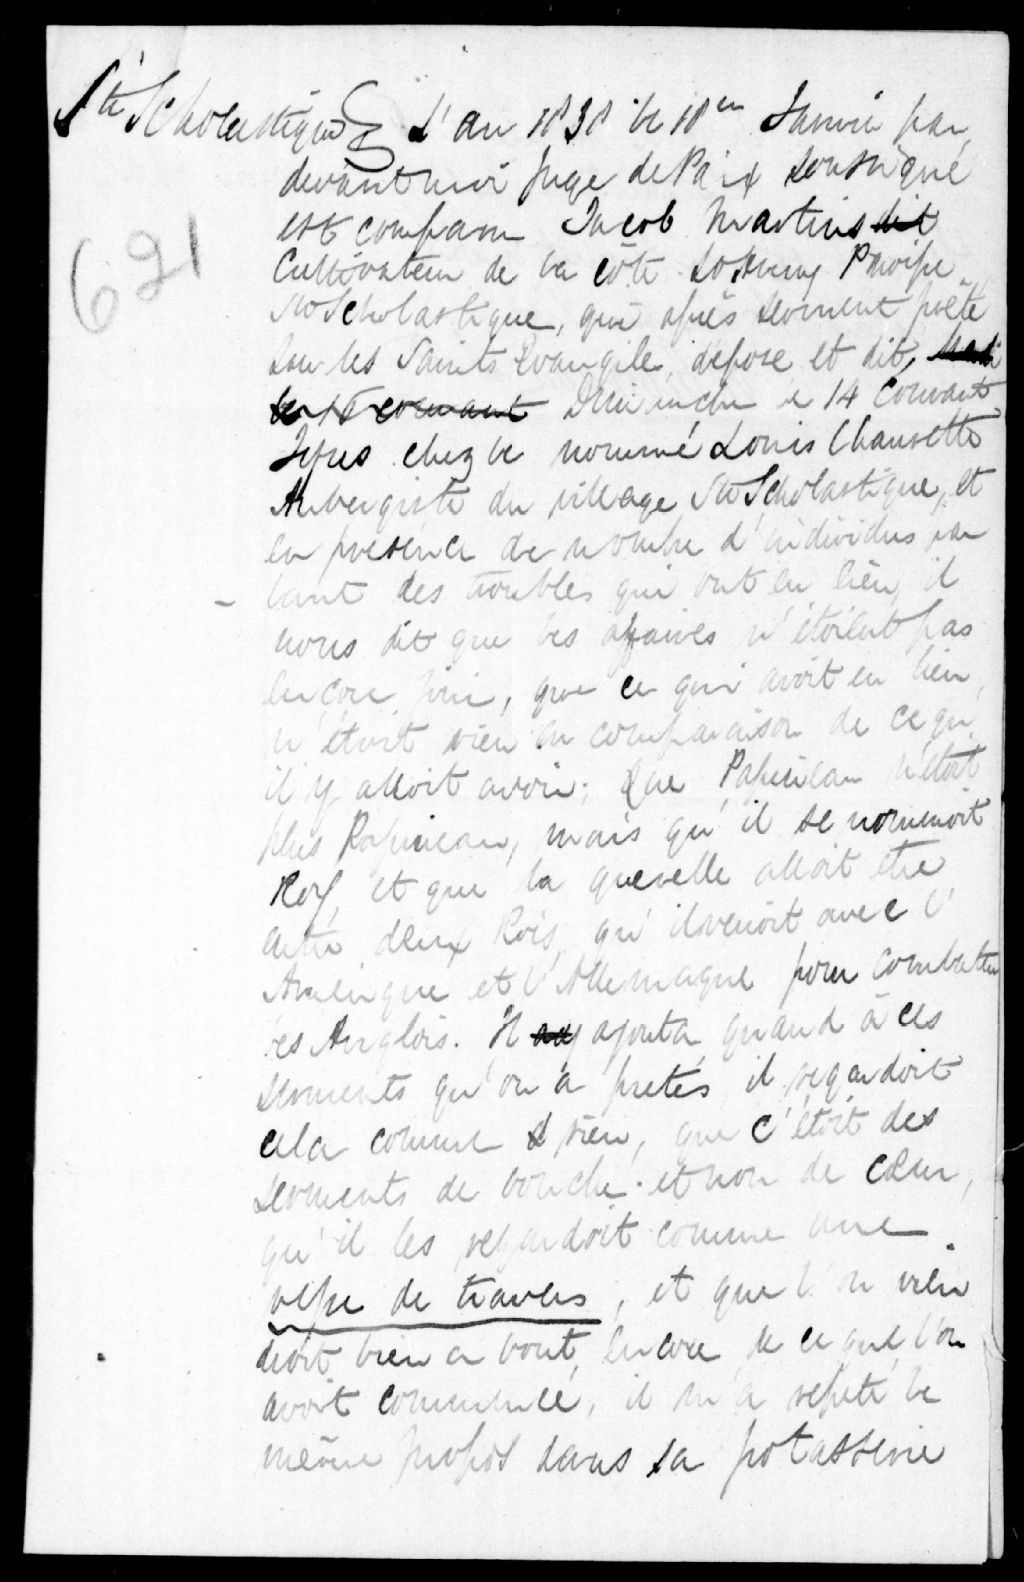 Ste Scholastique L'an 1838 le 18em Janvier par
devant moi Juge de Paix soussigné
est comparu Jacob Martins dit
Cultivateur de la côte St Paroisse
Ste Scholastique, qui après serment prêté
sur les Saints Evangiles, dépose et dit,
le courant Dimanche le 14 Courant
chez le nommé Louis Chaurette
Aubergiste du village Ste Scholastique, et
en présence de nombre d'individus par
lant des troubles qui ont eu lieu, il
nous dit que les affaires n'étoient pas
encore fini, que ce qui avoit eu lieu,
n'étoit rien en comparaison de ce qu
il y alloit avoir; que Papineau n'étoit
plus Papineau, mais qu'il se nommoit
Roy, et que la querelle alloit etre
entre deux Rois, qu'il venoit avec l'
Amérique et l'Allemagne pour combattre
les Anglois. Il ajouta quand à ces
serments qu'on a pretés, il regardoit
cela comme rien, que c'étoit des
serments de bouche et non de cœur,
qu'il les regardoit comme une
vesse de travers, et que l'on vien
droit bien a bout, encore de ce que l'on
avoit commencé, il m'a repeté le
même propos dans sa potasserie
621